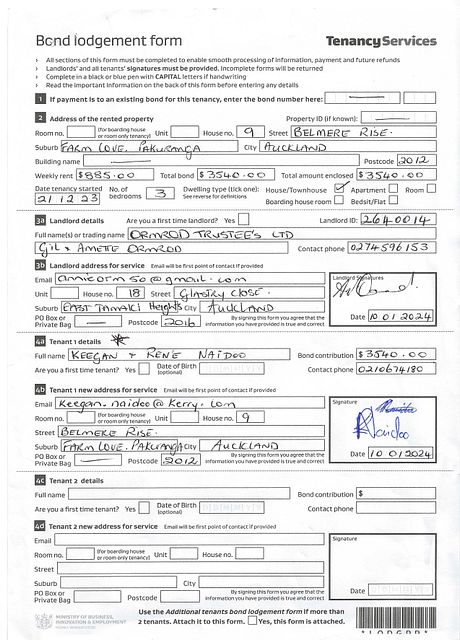 Bond lodgement form
TenancyServices
› All sections of this form must be completed to enable smooth processing of information, payment and future refunds
› Landlords' and all tenants' signatures must be provided. Incomplete forms will be returned
› Complete in a black or blue pen with CAPITAL letters if handwriting
› Read the important information on the back of this form before entering any details
1 If payment is to an existing bond for this tenancy, enter the bond number here:
2 Address of the rented property Property ID (if known):
Room no. (for boarding house or room only tenancy) Unit House no. 9 Street BELMERE RISE.
Suburb FARM COVE. PAKURANGA City AUCKLAND
Building name Postcode 2012
Weekly rent $885.00 Total bond $3540.00 Total amount enclosed $3540.00
Date tenancy started 21 12 23 No. of bedrooms 3 Dwelling type (tick one): See reverse for definitions House/Townhouse ✓ Apartment Room
Boarding house room Bedsit/Flat
3a Landlord details Are you a first time landlord? Yes Landlord ID: 2640014
Full name(s) or trading name ORMROD TRUSTEE'S LTD
GIL & ANNETTE ORMROD Contact phone 0274596153
3b Landlord address for service Email will be first point of contact if provided
Email annicorm50@gmail.com
Landlord Signatures
Unit House no. 18 Street GLASTRY CLOSE.
Suburb EAST TAMAKI Heights City AUCKLAND
PO Box or Private Bag Postcode 2016 By signing this form you agree that the information you have provided is true and correct Date 10 01 2024
4a Tenant 1 details
Full name KEEGAN & RENE NAIDOO Bond contribution $3540.00
Are you a first time tenant? Yes Date of Birth (optional) Contact phone 0210674180
4b Tenant 1 new address for service Email will be first point of contact if provided
Email Keegan.naidoo@Kerry.com
Signature
Room no. (for boarding house or room only tenancy) Unit House no. 9
Street BELMERE RISE.
Suburb FARM COVE. PAKURANGA City AUCKLAND
PO Box or Private Bag Postcode 2012 By signing this form you agree that the information you have provided is true and correct Date 10 01 2024
4c Tenant 2 details
Full name Bond contribution $
Are you a first time tenant? Yes Date of Birth (optional) Contact phone
4d Tenant 2 new address for service Email will be first point of contact if provided
Email
Signature
Room no. (for boarding house or room only tenancy) Unit House no.
Street
Suburb City
PO Box or Private Bag Postcode By signing this form you agree that the information you have provided is true and correct Date
MINISTRY OF BUSINESS, INNOVATION & EMPLOYMENT
Use the Additional tenants bond lodgement form if more
than 2 tenants. Attach it to this form. Yes, this form is attached.